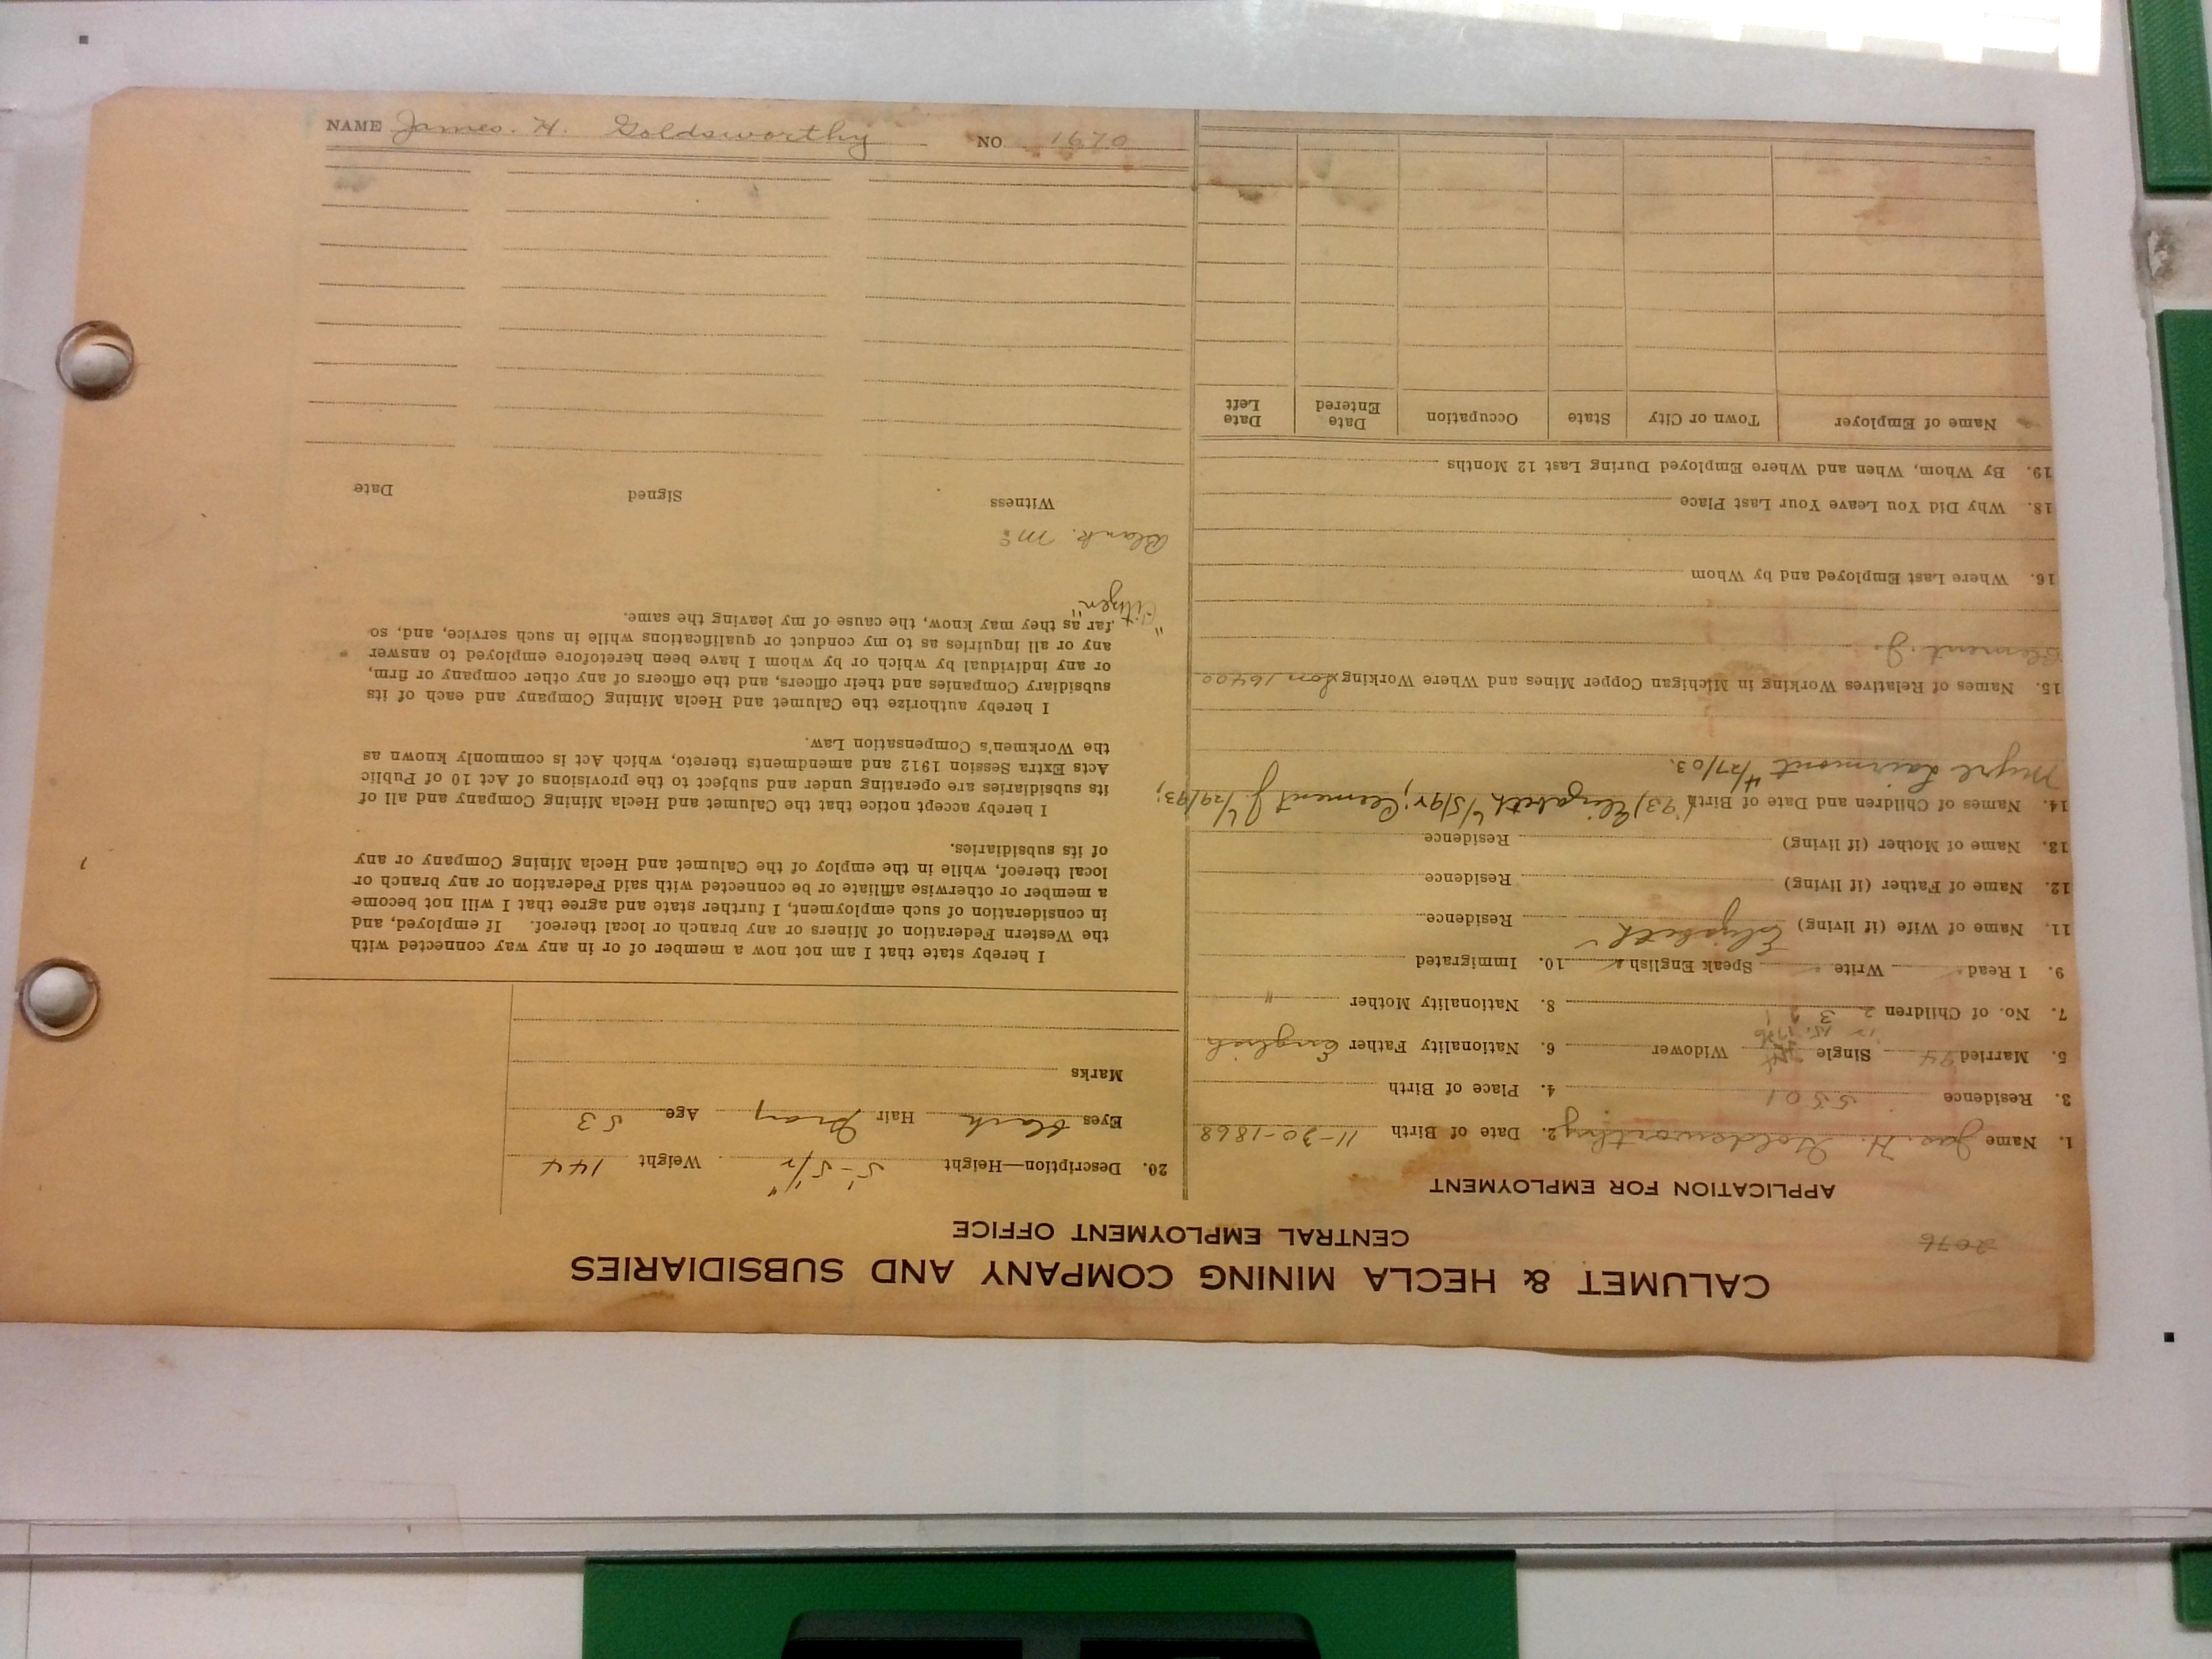 2076
CALUMET & HECLA MINING COMPANY AND SUBSIDIARIES
CENTRAL EMPLOYMENT OFFICE
APPLICATION FOR EMPLOYMENT
1. Name Jas. H. Goldsworthy 2. Date of Birth 11-30-1868
3. Residence 5501 4. Place of Birth
5. Married 94 Single Widower 6. Nationality Father English
7. No. of Children 2 3 8. Nationality Mother "
9. I Read Write Speak English 10. Immigrated
11. Name of Wife (if living) Elizabeth Residence
12. Name of Father (if living) Residence
13. Name of Mother (if living) Residence
14. Names of Children and Date of Birth Elizabeth Clement J.
Myrl 4/27/03.
15. Names of Relatives Working in Michigan Copper Mines and Where Working Son 16400
Clement J.
16. Where Last Employed and by Whom
18. Why Did You Leave Your Last Place
19. By Whom, When and Where Employed During Last 12 Months
Name of Employer Town or City State Occupation Date Entered Date Left
20. Description—Height 5'-5 1/2" Weight 144
Eyes Hair Gray Age 53
Marks
I hereby state that I am not now a member of or in any way connected with
the Western Federation of Miners or any branch or local thereof. If employed, and
in consideration of such employment, I further state and agree that I will not become
a member or otherwise affiliate or be connected with said Federation or any branch or
local thereof, while in the employ of the Calumet and Hecla Mining Company or any
of its subsidiaries.
I hereby accept notice that the Calumet and Hecla Mining Company and all of
its subsidiaries are operating under and subject to the provisions of Act 10 of Public
Acts Extra Session 1912 and amendments thereto, which Act is commonly known as
the Workmen's Compensation Law.
I hereby authorize the Calumet and Hecla Mining Company and each of its
subsidiary Companies and their officers, and the officers of any other company or firm,
or any individual by which or by whom I have been heretofore employed to answer
any or all inquiries as to my conduct or qualifications while in such service, and, so
far as they may know, the cause of my leaving the same.
"Citizen"
Blank. Mc
Witness Signed Date
NAME James. H. Goldsworthy NO 1670